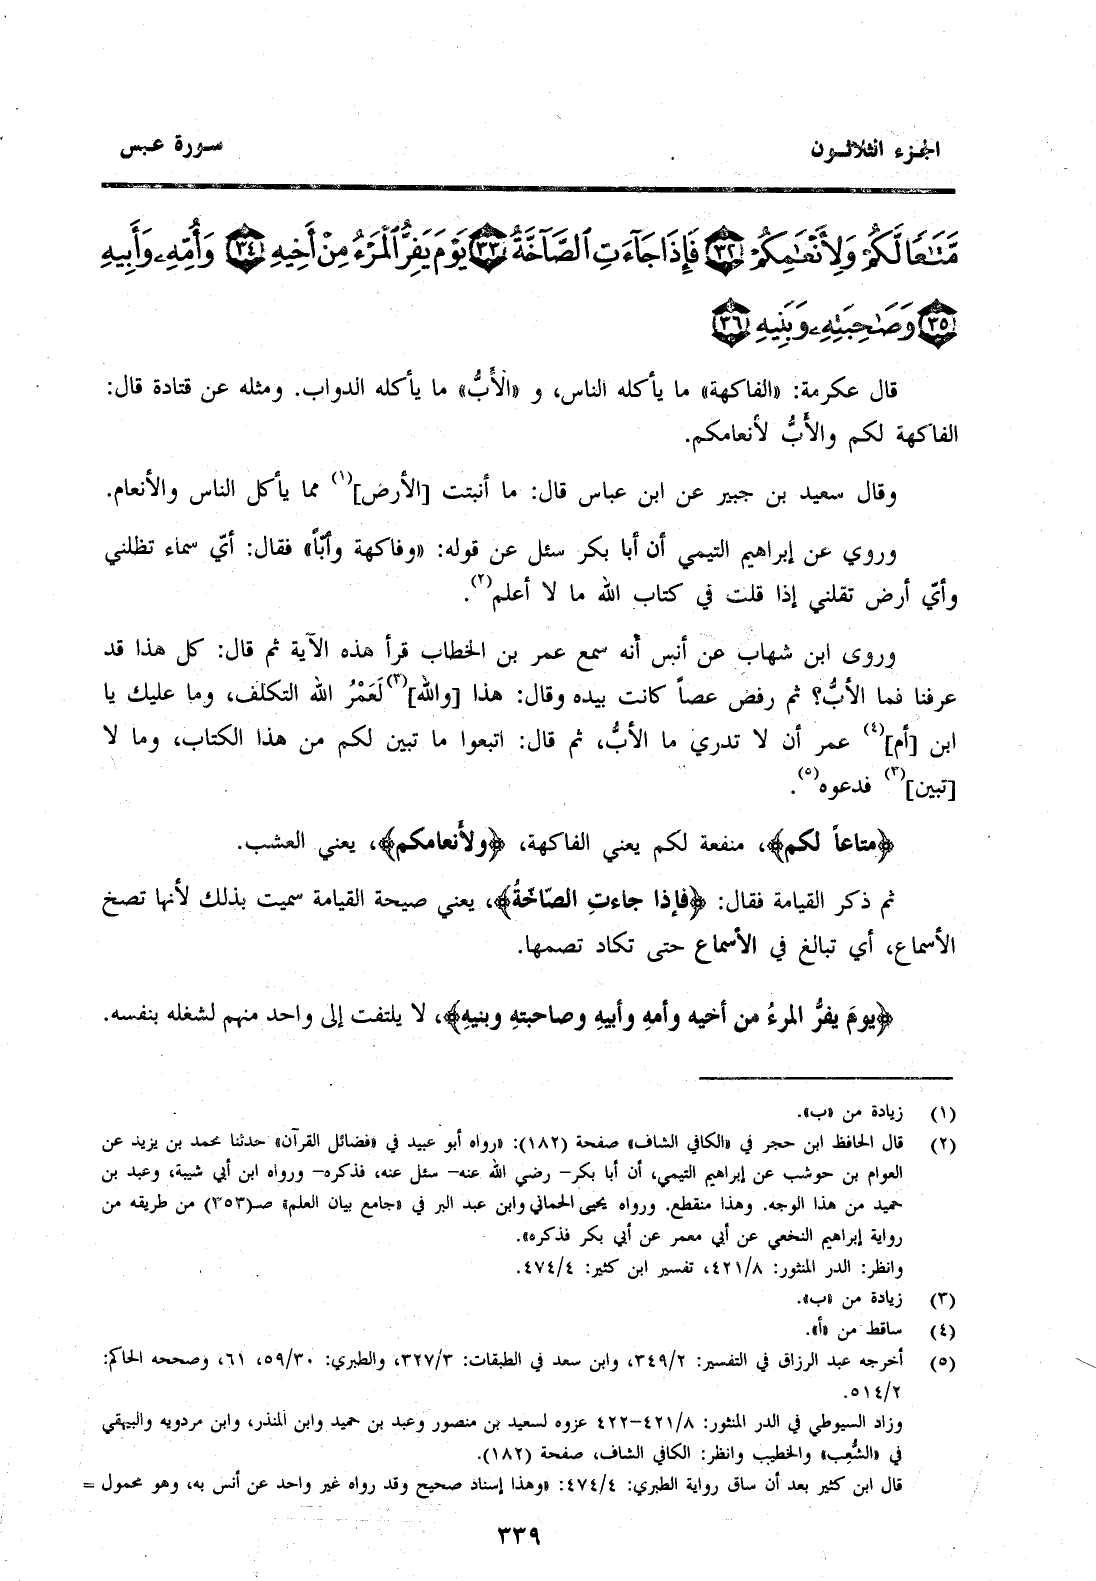 الجزء الثلاثون
سورة عبس
مَّتَٰعًا لَّكُمْ وَلِأَنْعَٰمِكُمْ ۝٣٢ فَإِذَا جَآءَتِ ٱلصَّآخَّةُ ۝٣٣ يَوْمَ يَفِرُّ ٱلْمَرْءُ مِنْ أَخِيهِ ۝٣٤ وَأُمِّهِۦ وَأَبِيهِ
۝٣٥ وَصَٰحِبَتِهِۦ وَبَنِيهِ ۝٣٦
قال عكرمة: «الفاكهة» ما يأكله الناس، و «الأَبُّ» ما يأكله الدواب. ومثله عن قتادة قال:
الفاكهة لكم والأَبُّ لأنعامكم.
وقال سعيد بن جبير عن ابن عباس قال: ما أنبتت [الأرض](١) مما يأكل الناس والأنعام.
وروي عن إبراهيم التيمي أن أبا بكر سئل عن قوله: «وفاكهة وأبّاً» فقال: أيّ سماء تظلني
وأيّ أرض تقلني إذا قلت في كتاب الله ما لا أعلم(٢).
وروى ابن شهاب عن أنس أنه سمع عمر بن الخطاب قرأ هذه الآية ثم قال: كل هذا قد
عرفنا فما الأبُّ؟ ثم رفض عصاً كانت بيده وقال: هذا [والله](٣) لَعَمْرُ الله التكلف، وما عليك يا
ابن [أم](٤) عمر أن لا تدري ما الأبُّ، ثم قال: اتبعوا ما تبين لكم من هذا الكتاب، وما لا
[تبين](٣) فدعوه(٥).
﴿متاعاً لكم﴾، منفعة لكم يعني الفاكهة، ﴿ولأنعامكم﴾، يعني العشب.
ثم ذكر القيامة فقال: ﴿فإذا جاءتِ الصّاخّةُ﴾، يعني صيحة القيامة سميت بذلك لأنها تصخ
الأسماع، أي تبالغ في الأسماع حتى تكاد تصمها.
﴿يومَ يفرُّ المرءُ من أخيه وأمهِ وأبيهِ وصاحبتهِ وبنيهِ﴾، لا يلتفت إلى واحد منهم لشغله بنفسه.
(١) زيادة من «ب».
(٢) قال الحافظ ابن حجر في «الكافي الشاف» صفحة (١٨٢): «رواه أبو عبيد في «فضائل القرآن» حدثنا محمد بن يزيد عن
العوام بن حوشب عن إبراهيم التيمي، أن أبا بكر– رضي الله عنه– سئل عنه، فذكره– ورواه ابن أبي شيبة، وعبد بن
حميد من هذا الوجه. وهذا منقطع. ورواه يحيى الحماني وابن عبد البر في «جامع بيان العلم» صـ(٣٥٣) من طريقه من
رواية إبراهيم النخعي عن أبي معمر عن أبي بكر فذكره».
وانظر: الدر المنثور: ٤٢١/٨، تفسير ابن كثير: ٤٧٤/٤.
(٣) زيادة من «ب».
(٤) ساقط من «أ».
(٥) أخرجه عبد الرزاق في التفسير: ٣٤٩/٢، وابن سعد في الطبقات: ٣٢٧/٣، والطبري: ٥٩/٣٠، ٦١، وصححه الحاكم:
٥١٤/٢.
وزاد السيوطي في الدر المنثور: ٤٢١/٨–٤٢٢ عزوه لسعيد بن منصور وعبد بن حميد وابن المنذر، وابن مردويه والبيهقي
في «الشُّعب» والخطيب وانظر: الكافي الشاف، صفحة (١٨٢).
قال ابن كثير بعد أن ساق رواية الطبري: ٤٧٤/٤: «وهذا إسناد صحيح وقد رواه غير واحد عن أنس به، وهو محمول =
٣٣٩